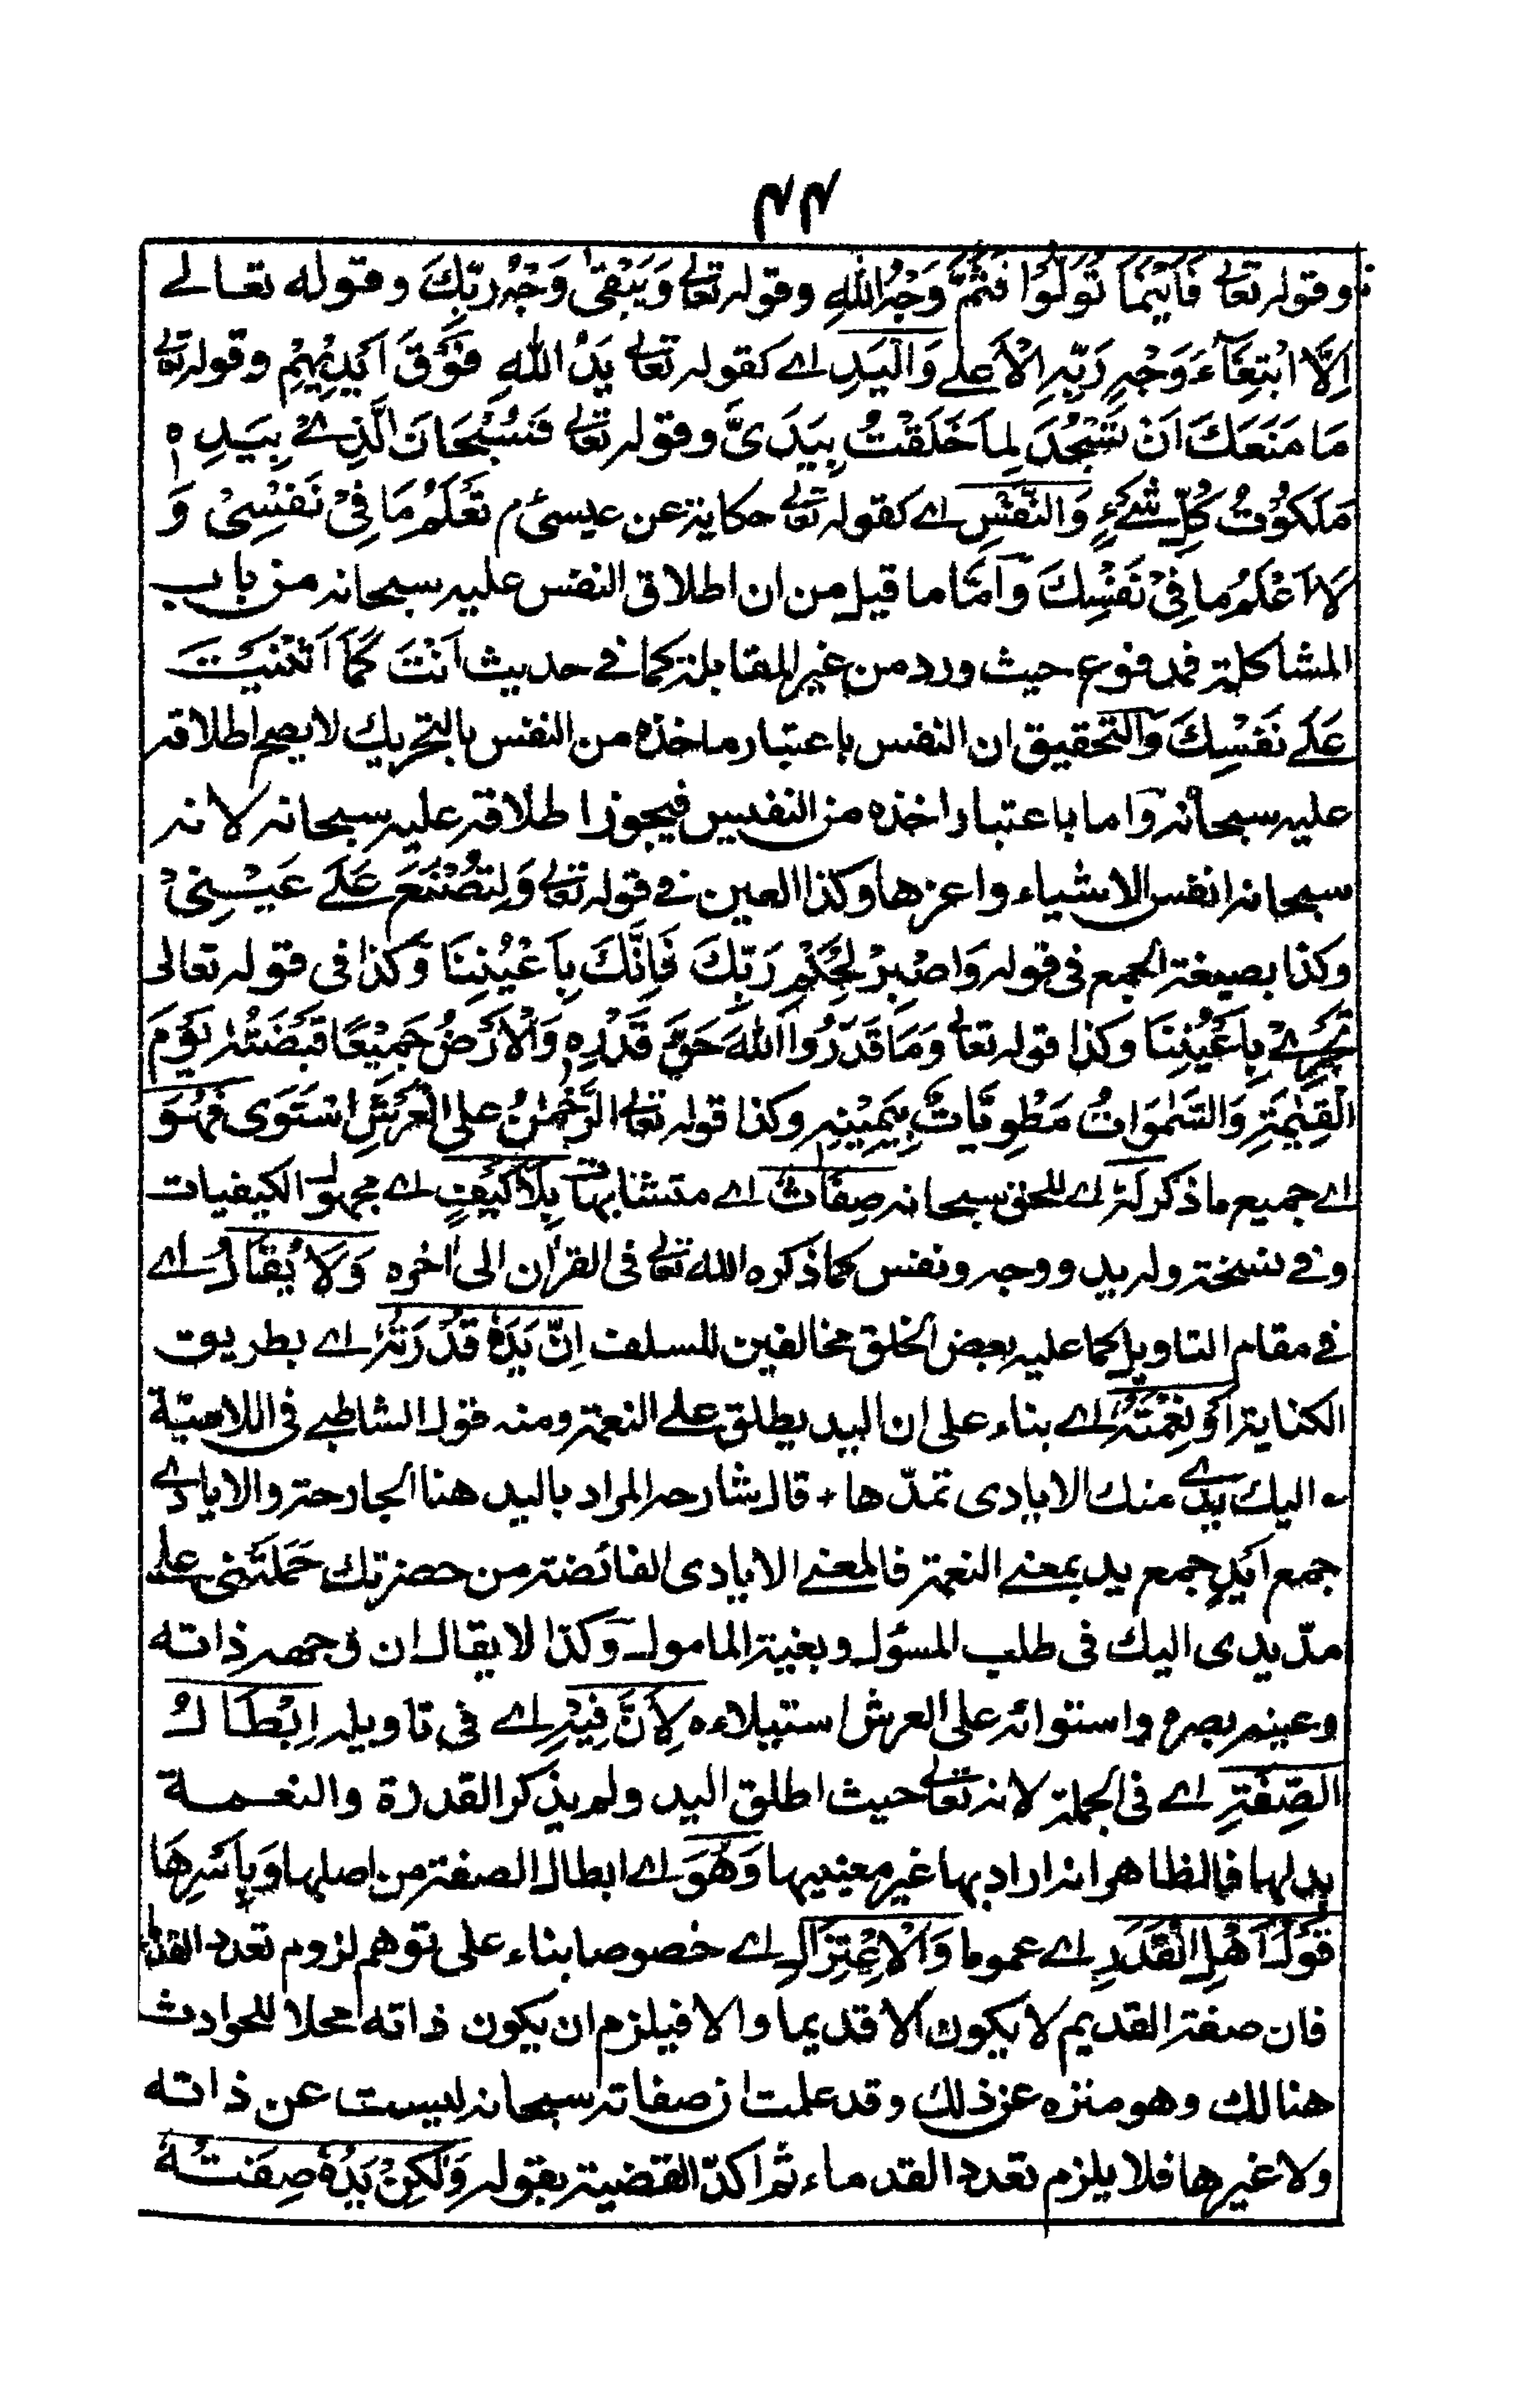 ٤٤
وقوله تعالى فَاَيْنَمَا تُوَلُّوْا فَثَمَّ وَجْهُ اللّٰهِ وقوله تعالى وَيَبْقٰى وَجْهُ رَبِّكَ وقوله تعالے
اِلَّا ابْتِغَآءَ وَجْهِ رَبِّهِ الْاَعْلے وَالْيَدِ اے كقوله تعالى يَدُ اللّٰهِ فَوْقَ اَيْدِيْهِمْ وقوله تعالى
مَا مَنَعَكَ اَنْ تَسْجُدَ لِمَا خَلَقْتُ بِيَدَىَّ وقوله تعالى فَسُبْحَانَ الَّذِے بِيَدِهٖ
مَلَكُوْتُ كُلِّ شَےْءٍ وَالنَّفْسِ اے كقوله تعالى حكاية عن عيسىٰ ؑم تَعْلَمُ مَا فِىْ نَفْسِىْ وَ
لَا اَعْلَمُ مَا فِىْ نَفْسِكَ وَاَمَّا ما قيل من ان اطلاق النفس عليه سبحانه من باب
المشاكلة فمدفوع حيث ورد من غير المقابلة كما فے حديث اَنْتَ كَمَا اَثْنَيْتَ
عَلٰے نَفْسِكَ وَالتحقيق ان النفس باعتبار ماخذه من النفس بالتحريك لا يصح اطلاقه
عليه سبحانه واما باعتبار اخذه من النفيس فيجوز اطلاقه عليه سبحانه لانه
سبحانه انفس الاشياء واعزها وكذا العين فے قوله تعالى وَلِتُصْنَعَ عَلٰے عَيْنِىْ
وكذا بصيغة الجمع فى قوله وَاصْبِرْ لِحُكْمِ رَبِّكَ فَاِنَّكَ بِاَعْيُنِنَا وَكذا فى قوله تعالى
تَجْرِےْ بِاَعْيُنِنَا وكذا قوله تعالى وَمَا قَدَرُوا اللّٰهَ حَقَّ قَدْرِهٖ وَالْاَرْضُ جَمِيْعًا قَبْضَتُهٗ يَوْمَ
الْقِيٰمَةِ وَالسَّمٰوَاتُ مَطْوِيَّاتٌ بِيَمِيْنِهٖ وكذا قوله تعالى الرَّحْمٰنُ على الْعَرْشِ اسْتَوَى فَهُوَ
اے جميع ما ذكر لَهٗ اے للحق سبحانه صِفَاتٌ اے متشابهات بِلَا كَيْفٍ اے مجهول الكيفيات
وفے نسخة وله يد ووجه ونفس كما ذكره الله تعالى فى القران الى اٰخره وَلَا يُقَالُ اے
فے مقام التاويل كما عليه بعض الخلق مخالفين للسلف اِنَّ يَدَهٗ قُدْرَتُهٗ اے بطريق
الكناية اَوْ نِعْمَتُهٗ اے بناء على ان اليد يطلق علے النعمة ومنه قول الشاطبے فى اللامية
؎ اليك يدے منك الايادى تمدّها ٭ قال شارحه المراد باليد هنا الجارحة والايادے
جمع اَيْدٍ جمع يد بمعنے النعمة فالمعنے الايادى الفائضة من حضرتك حَمَلَتْنى على
مدّ يدى اليك فى طلب المسؤل وبغية المامول وكذا لا يقال ان وجهه ذاته
وعينه بصره واستوائه على العرش استيلاءه لِاَنَّ فِيْهِ اے فى تاويله اِبْطَالُ
الصِّفَةِ اے فى الجملة لانه تعالى حيث اطلق اليد ولم يذكر القدرة والنعمة
بدلها فالظاهر انه اراد بها غير معنييها وَهُوَ اے ابطال الصفة من اصلها وَبِاَسْرِهَا
قَوْلُ اَهْلِ الْقَدَرِ اے عموما وَالْاِعْتِزَالِ اے خصوصا بناء على توهم لزوم تعدد القدماء
فان صفة القديم لا يكون الا قديما والا فيلزم ان يكون ذاته محلا للحوادث
هنالك وهو منزه عن ذلك وقد علمت ان صفاته سبحانه ليست عن ذاته
ولا غيرها فلا يلزم تعدد القدماء ثم اكدّ القضية بقوله وَلٰكِنْ يَدُهٗ صِفَتُهٗ